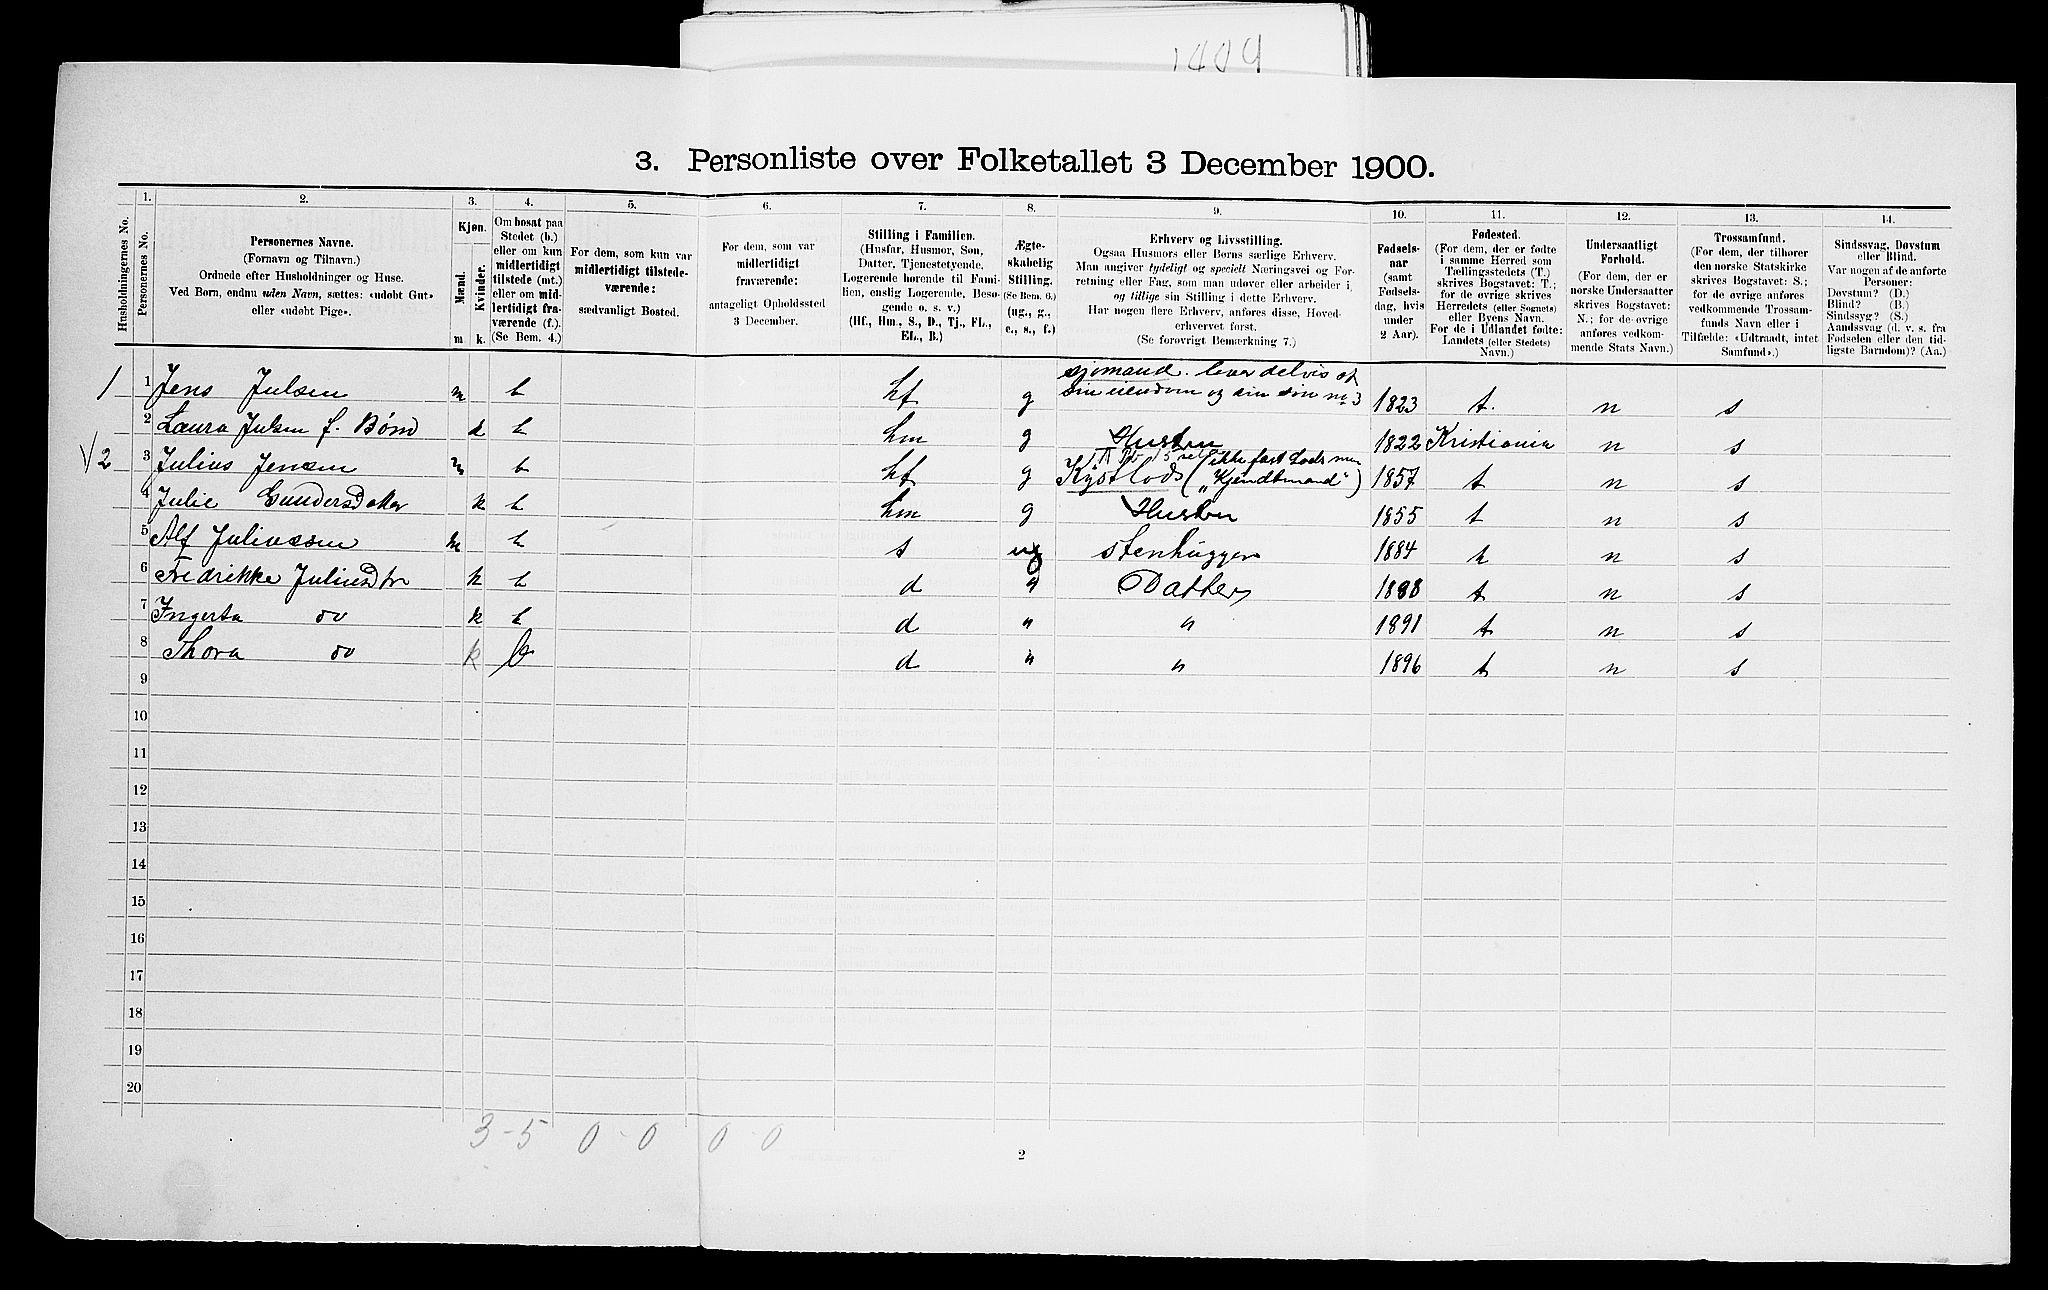 1404
3. Personliste over Folketallet 3 December 1900.
Husholdningernes No.
1.
Personernes No.
2.
Personernes Navne.
(Fornavn og Tilnavn.)
Ordnede efter Husholdninger og Huse.
Ved Børn, endnu uden Navn, sættes: «udøbt Gut»
eller «udøbt Pige».
3.
Kjøn.
Mænd.
Kvinder.
m k.
4.
Om bosat paa
Stedet (b.)
eller om kun
midlertidigt
tilstede (mt.)
eller om mid-
lertidigt fra-
værende (f.).
(Se Bem. 4.)
5.
For dem, som kun var
midlertidigt tilstede-
værende:
sædvanligt Bosted.
6.
For dem, som var
midlertidigt
fraværende:
antageligt Opholdssted
3 December.
7.
Stilling i Familien.
(Husfar, Husmor, Søn,
Datter, Tjenestetyende,
Logerende hørende til Fami-
lien, enslig Logerende, Besø-
gende o. s. v.)
(Hf., Hm., S., D., Tj., FL.,
EL., B.)
8.
Ægte-
skabelig
Stilling.
(Se Bem. 6.)
(ug., g.,
e., s., f.)
9.
Erhverv og Livsstilling.
Ogsaa Husmors eller Børns særlige Erhverv.
Man angiver tydeligt og specielt Næringsvei og For-
retning eller Fag, som man udøver eller arbeider i,
og tillige sin Stilling i dette Erhverv.
Har nogen flere Erhverv, anføres disse, Hoved-
erhvervet først.
(Se forøvrigt Bemærkning 7.)
10.
Fødsels-
aar
(samt
Fødsels-
dag, hvis
under
2 Aar).
11.
Fødested.
(For dem, der er fødte
i samme Herred som
Tællingsstedets (T.)
skrives Bogstavet: T.;
for de øvrige skrives
Herredets (eller Sognets)
eller Byens Navn.
For de i Udlandet fødte:
Landets (eller Stedets)
Navn.)
12.
Undersaatligt
Forhold.
(For dem, der er
norske Undersaatter
skrives Bogstavet:
N.; for de øvrige
anføres vedkom-
mende Stats Navn.)
13.
Trossamfund.
(For dem, der tilhører
den norske Statskirke
skrives Bogstavet: S.;
for de øvrige anføres
vedkommende Trossam-
funds Navn eller i
Tilfælde: «Udtraadt, intet
Samfund».)
14.
Sindssvag, Døvstum
eller Blind.
Var nogen af de anførte
Personer:
Døvstum? (D.)
Blind? (B.)
Sindssyg? (S.)
Aandssvag (d. v. s. fra
Fødselen eller den tid-
ligste Barndom)? (Aa.)
1 1 Jens Julsen m b hf g sjømand. lever delvis af sin eiendom og sin søn no 3 1823 t. n s
2 Laura Julsen f. Bønd k b hm g Hustru 1822 Kristiania n s
2 3 Julius Jensen m b hf g Kystlods (ikke fast Lods men „Kjendtmand") 1857 t n s
4 Julie Gundersdatter k b hm g Hustru 1855 t n s
5 Alf Juliussen m b s ug stenhugger 1884 t n s
6 Fredrikke Juliusdtr k b d " Datter 1888 t n s
7 Ingerta do k b d " " 1891 t n s
8 Thora do k b d " " 1896 t n s
9
10
11
12
13
14
15
16
17
18
19
20
3-5 0-0 0-0
2